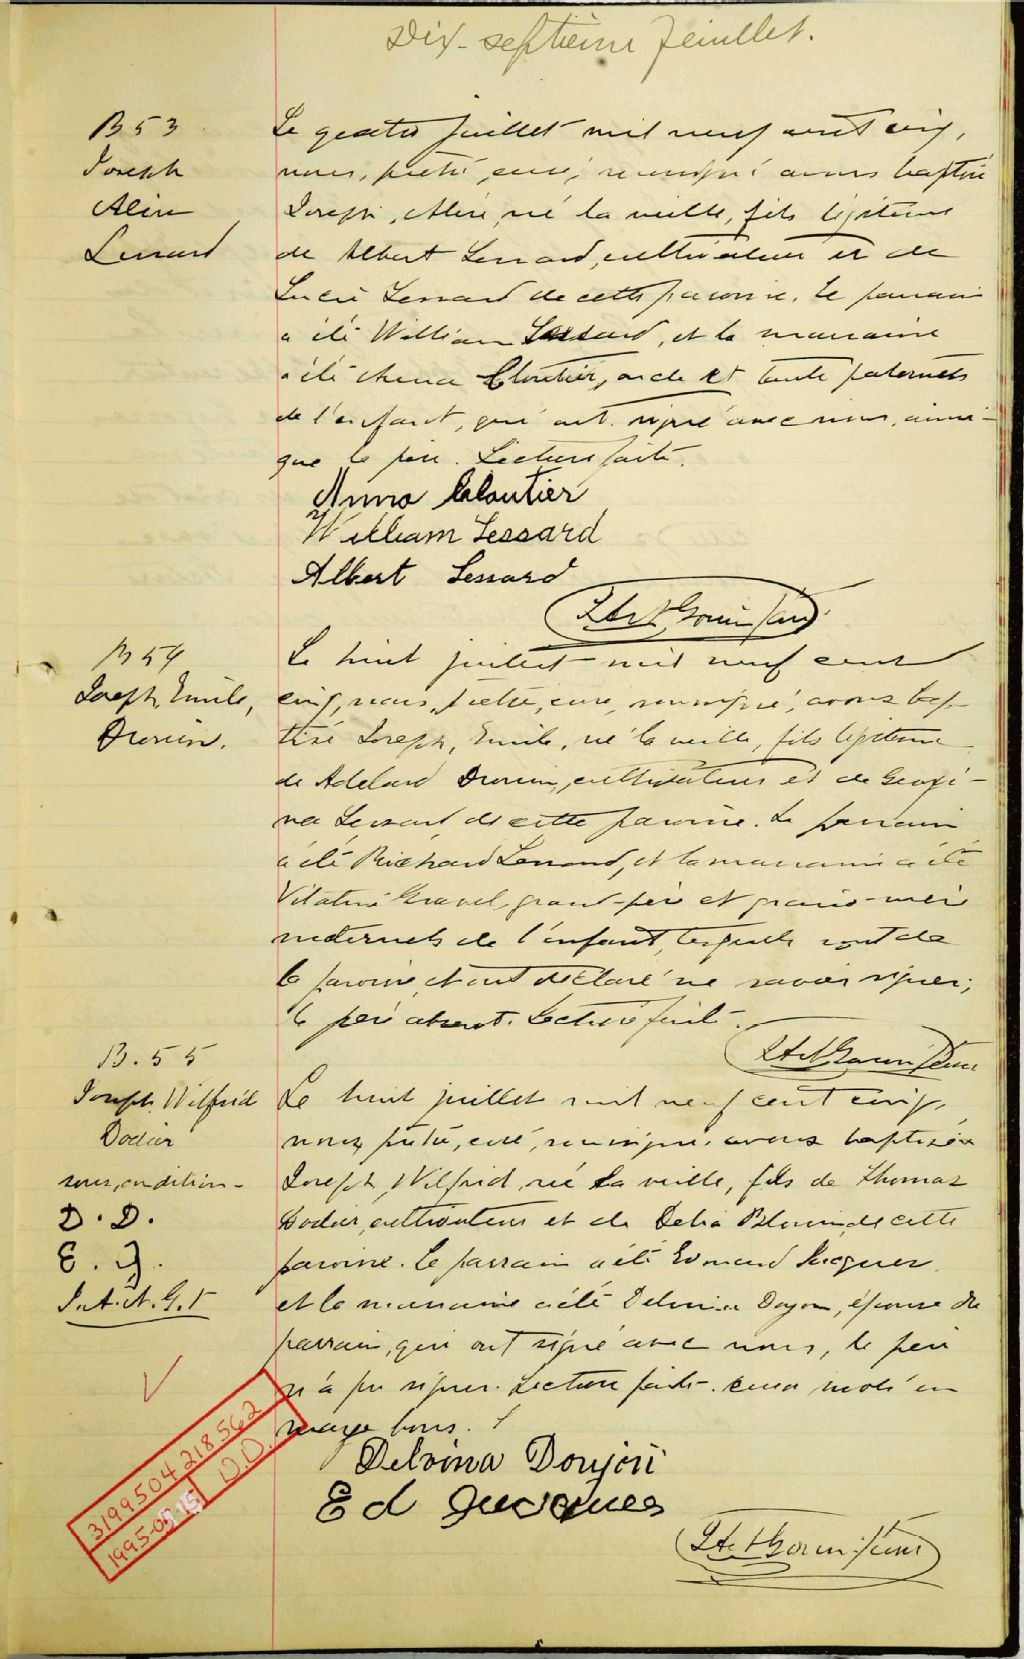 Dix-septième feuillet.
B 53
Joseph
Alire
Lessard
Le quatre juillet mil neuf cent cinq,
nous, prêtre, curé, soussigné avons baptisé
Joseph, Alire, né la veille, fils légitime
de Albert Lessard, cultivateur et de
Lessard de cette paroisse. Le parrain
a été William Lessard, et la marraine
a été Cloutier, oncle et tante paternels
de l'enfant, qui ont signé avec nous, ainsi
que le père. Lecture faite.
Anna Cloutier
William Lessard
Albert Lessard
B 54
Joseph, Emile,
Drouin.
Le huit juillet mil neuf cent
cinq, nous, prêtre, curé, soussigné, avons bap-
tisé Joseph, Emile, né la veille, fils légitime
de Adelard Drouin, cultivateur et de Georgi-
na Lessard, de cette paroisse. Le parrain
a été Richard Lessard, et la marraine a été
Vitaline Gravel, grand-père et grand-mère
maternels de l'enfant, lesquels sont de
la paroisse, et ont déclaré ne savoir signer;
le père absent. Lecture faite.
B. 55
Joseph, Wilfrid
Dodier
sous condition-
D. D.
E. J.
J.A.A.G.P
Le huit juillet mil neuf cent cinq,
nous, prêtre, curé, soussigné, avons baptisé
Joseph, Wilfrid, né la veille, fils de Thomas
Dodier, cultivateur et de Delia Blouin, de cette
paroisse. Le parrain a été Edouard Jacques
et la marraine a été Delvina Doyon, épouse du
parrain, qui ont signé avec nous, le père
n'a pu signer. Lecture faite. mots en
marge bons.
Delvina Doujon
Ed Jucques
3199504218562
1995-09-15 D.D.